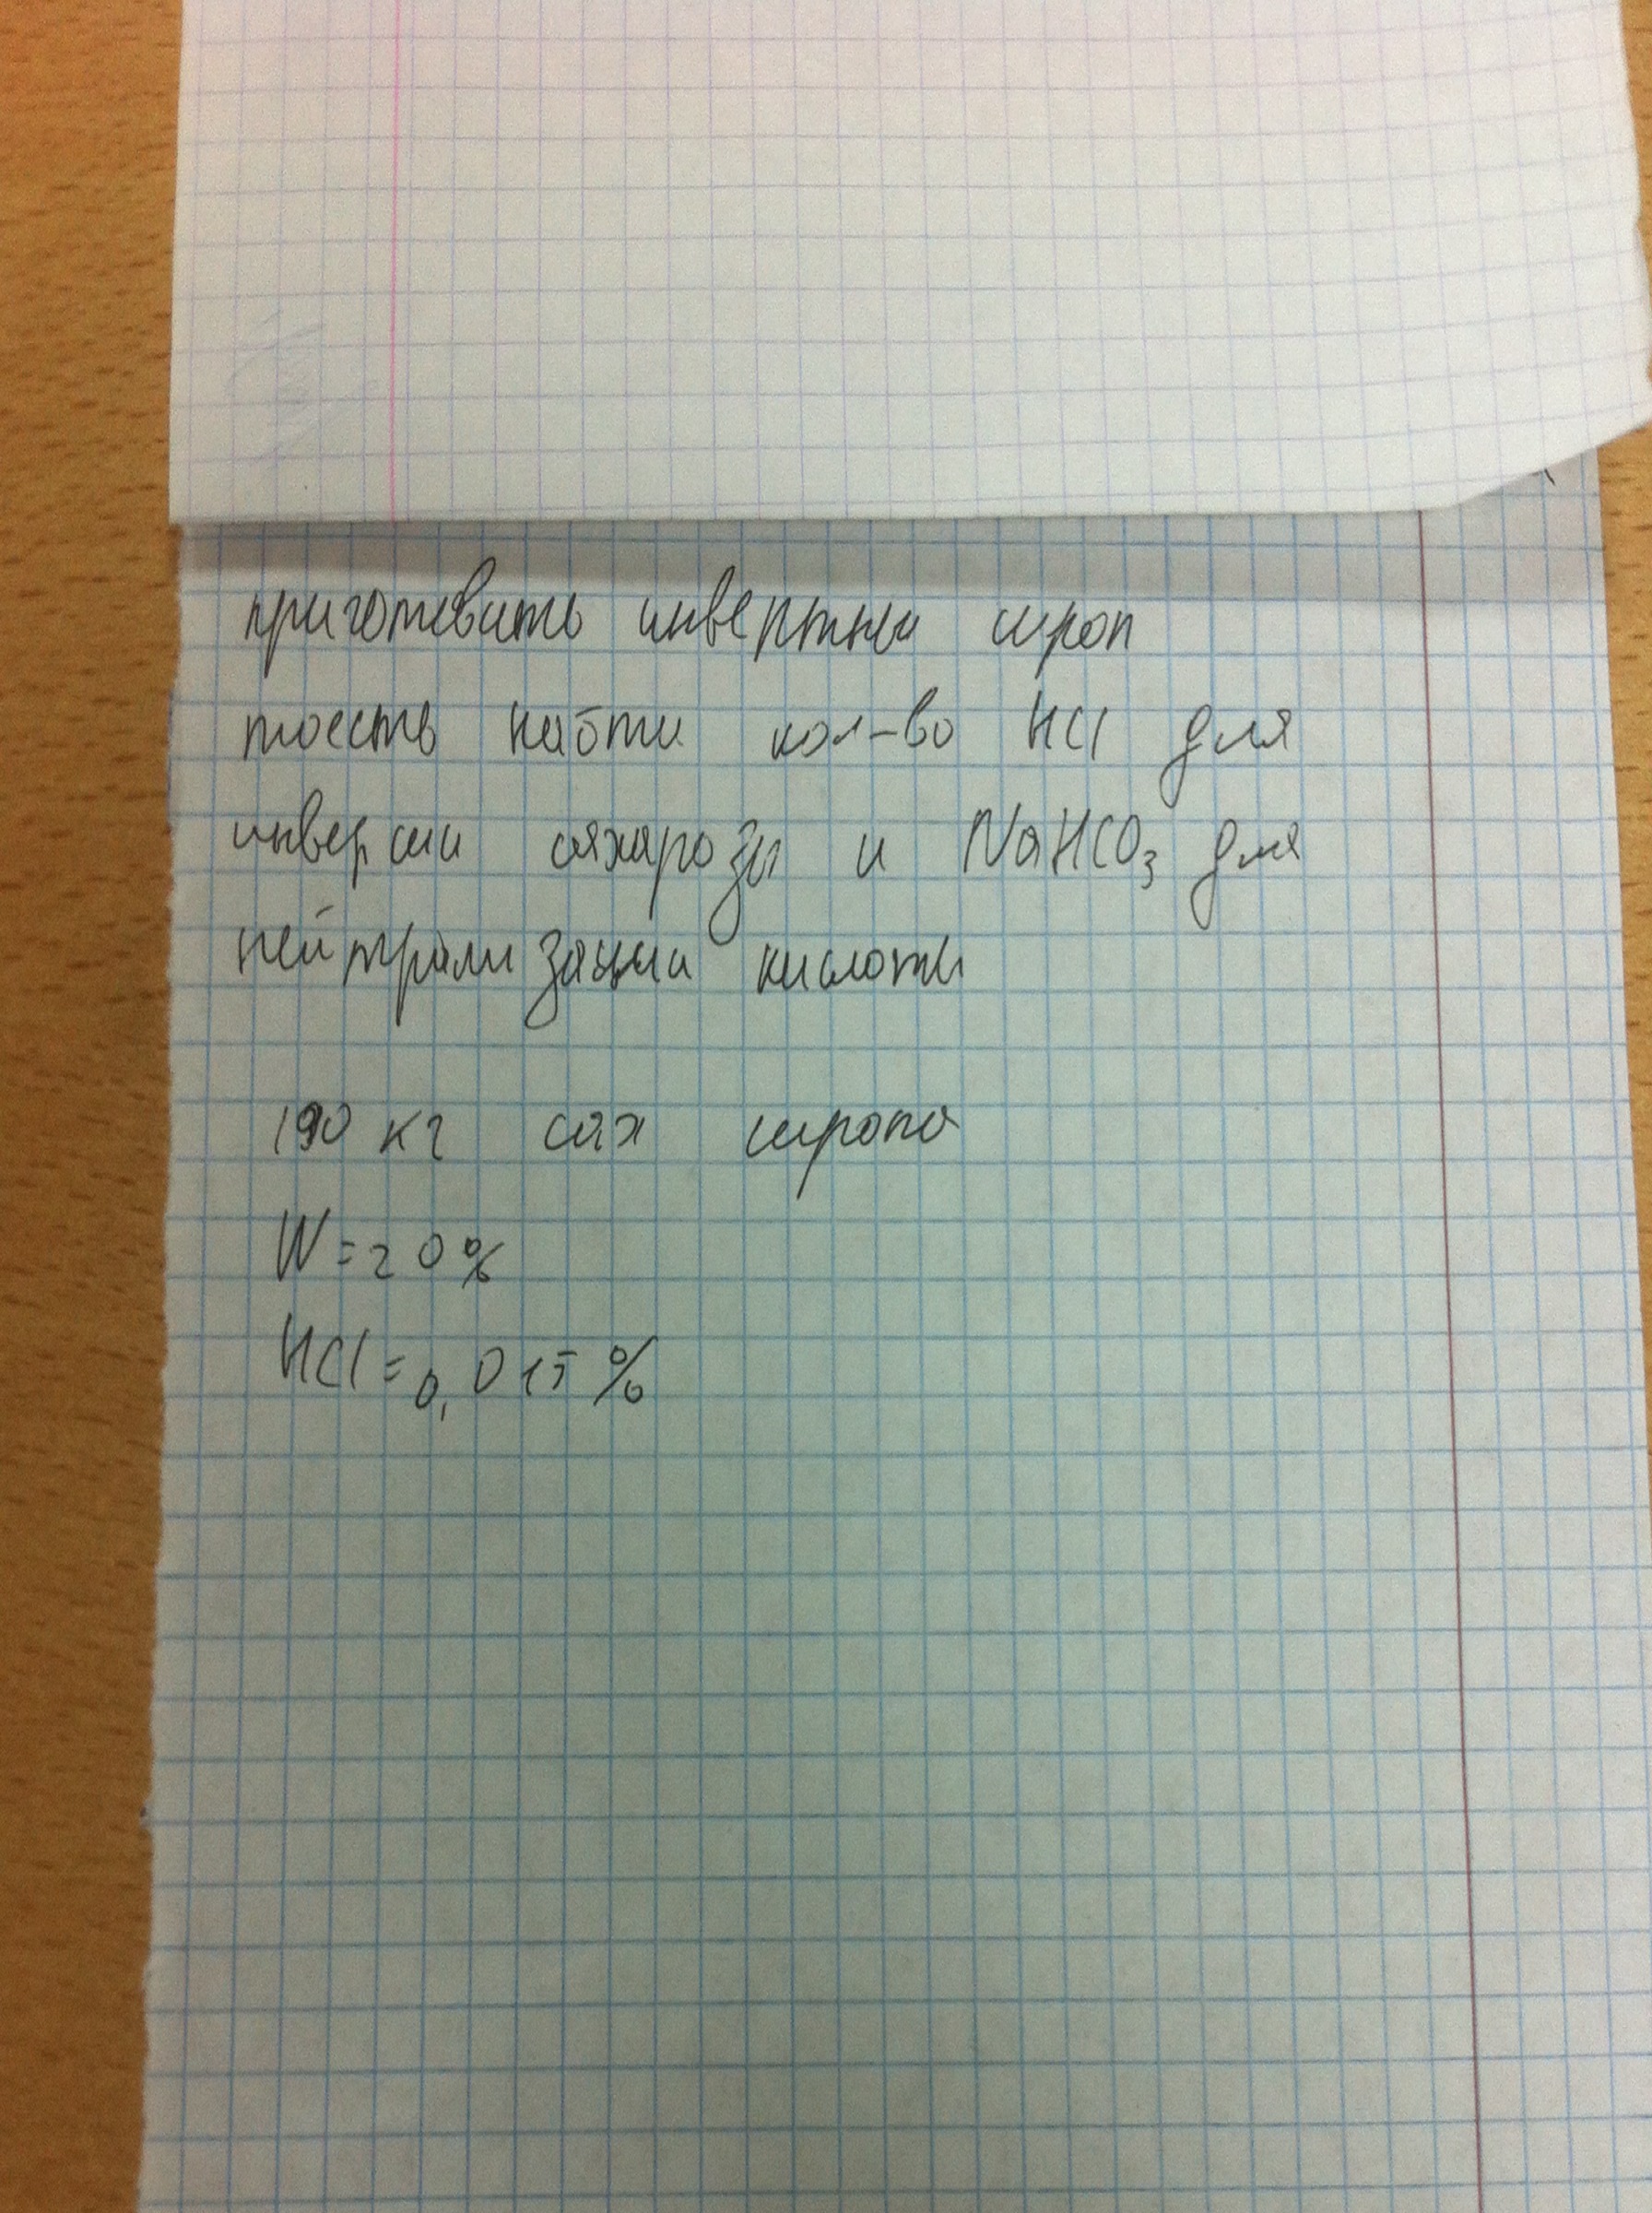 приготовить инвертный сироп
тоесть найти кол-во HCl для
инверсии сахарозы и NaHCO3 для
нейтрализации кислоты
190 кг сах сиропа
W=20%
HCl=0,015%